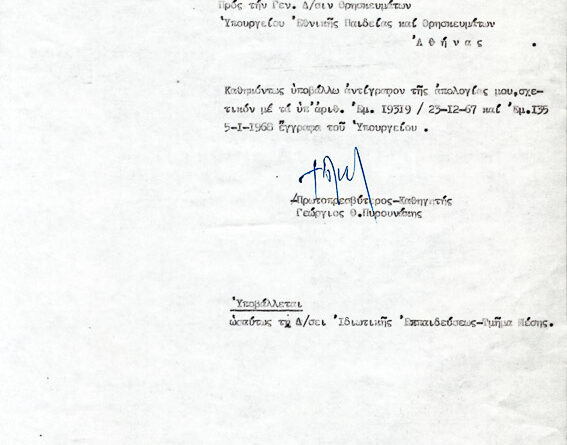 Πρός τήν Γεν. Δ/σιν Θρησκευμάτων
Ὑπουργείου Ἐθνικῆς Παιδείας καί Θρησκευμάτων
Ἀθήνας .
Καθηκόντως ὑποβάλλω ἀντίγραφον τῆς ἀπολογίας μου,σχε-
τικόν μέ τά ὑπ'ἀριθ. Ἐμ. I9319 / 23-I2-67 καί Ἐμ.I35
5-I-I968 ἔγγραφα τοῦ Ὑπουργείου .
Πρωτοπρεσβύτερος-Καθηγητής
Γεώργιος Θ.Πυρουνάκης
Ὑποβάλλεται
ὡσαύτως τῇ Δ/σει Ἰδιωτικῆς Ἐκπαιδεύσεως-Τμῆμα Μέσης.